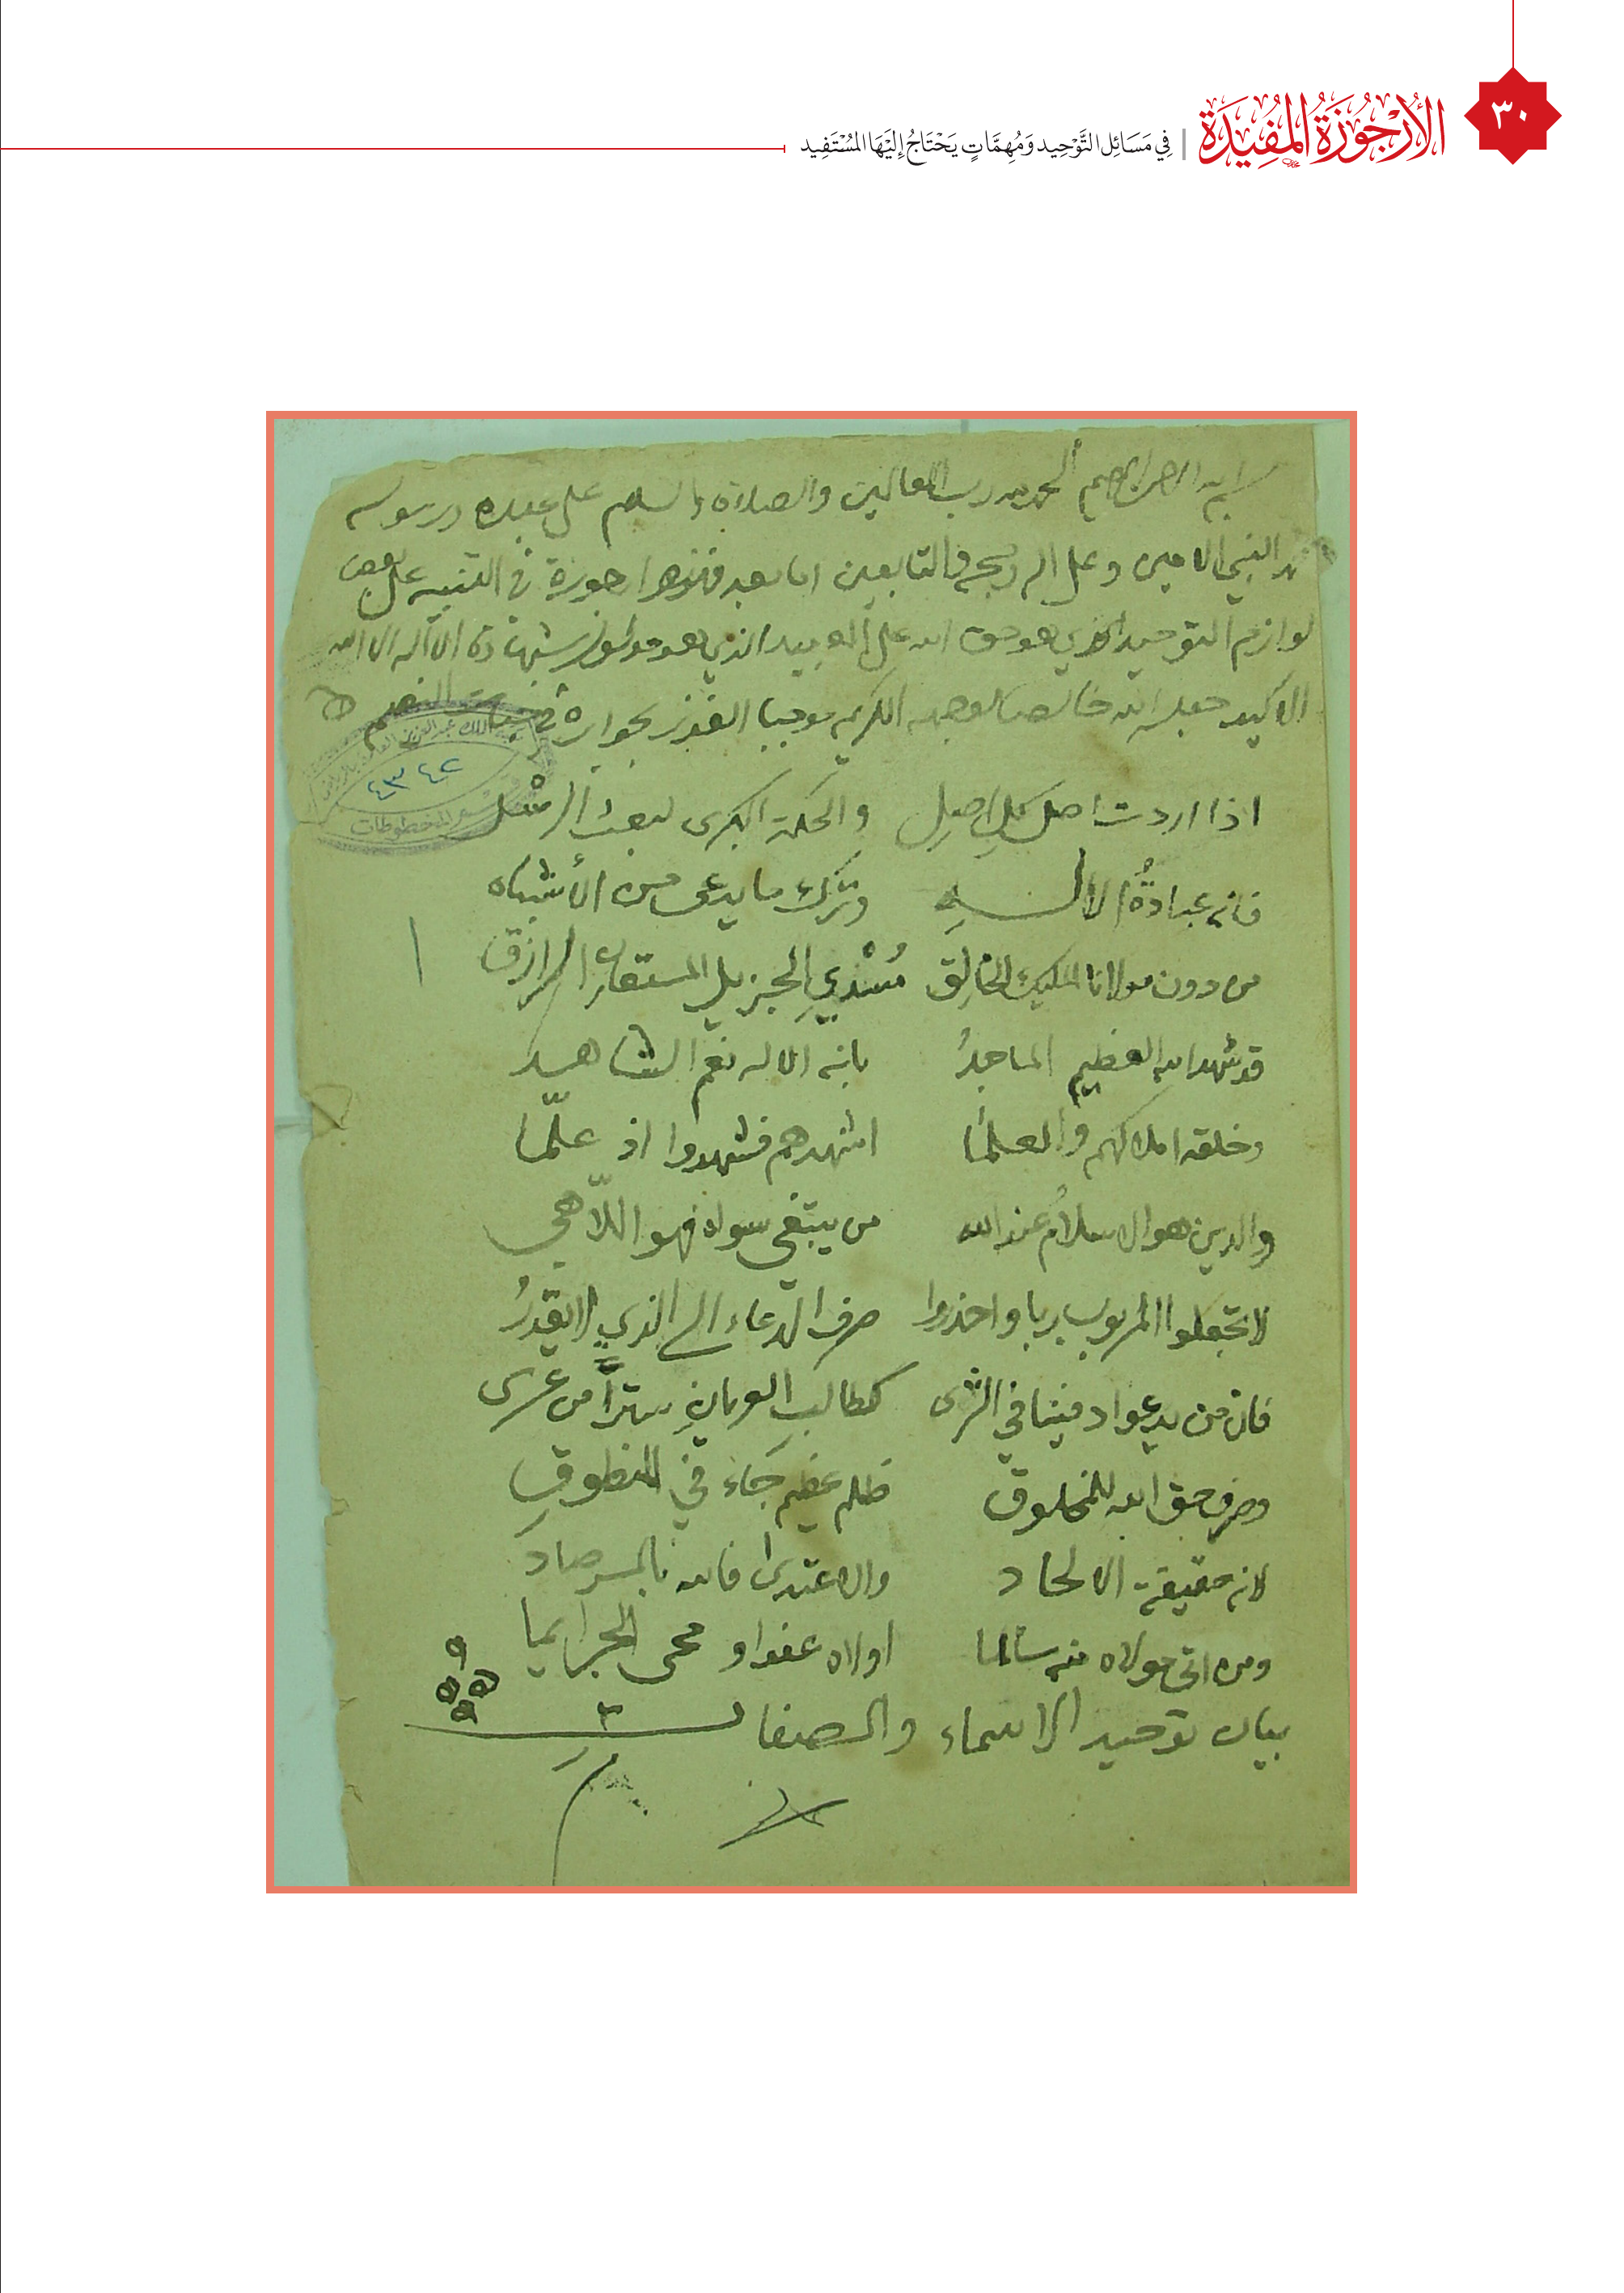 ٣٠
الأُرْجُوزَةُ المُفِيدَةُ | فِي مَسَائِلِ التَّوْحِيدِ وَمُهِمَّاتٍ يَحْتَاجُ إِلَيْهَا المُسْتَفِيد
بسم الله الرحمن الرحيم الحمد لله رب العالمين والصلاة والسلام على عبده ورسوله
النبي الامين وعلى اله وصحبه والتابعين اما بعد فهذه ارجوزة في التنبيه على بعض
لوازم التوحيد الذي هو حق الله على العبيد الذي هو مدلول شهادة ان لا اله الا الله
الاكيد جعله الله خالصا لوجهه الكريم موجبا الفوز بجواره في جنات النعيم
٤٣٤٢
المخطوطات
اذا اردت اصل كل اصل والحكمة الكبرى لبعث الرسْل
فانه عبادةُ الالـه وترك ما يدعى من الأشباه
من دون مولانا المليك الخالِق مُسْدِي الجزيل المستعان الرازق
قد شهد الله العظيم الماجدُ بانه الاله نعم الشاهد
وخلقه املاكهم والعلما اشهدهم فشهدوا اذ علّما
والدين هو الاسلامُ عند الله من يبتغى سواه فهو اللّاهي
لا تجعلوا المربوب ربا واحذروا صرف الدّعاء الى الذي لا يقدرُ
فان من يدعوا دفينا في الثرى كطالب العريانِ ستراً من عرى
وصرف حق الله للمخلوق ظلم عظيم جَاء في المنطوقِ
لانه حقيقة الالحاد والاعتدى فالله بالمرصاد
ومن اتى مولاه منه سالما اولاه عفوا و محى الجرايما
بيان توحيد الاسماء والصفات